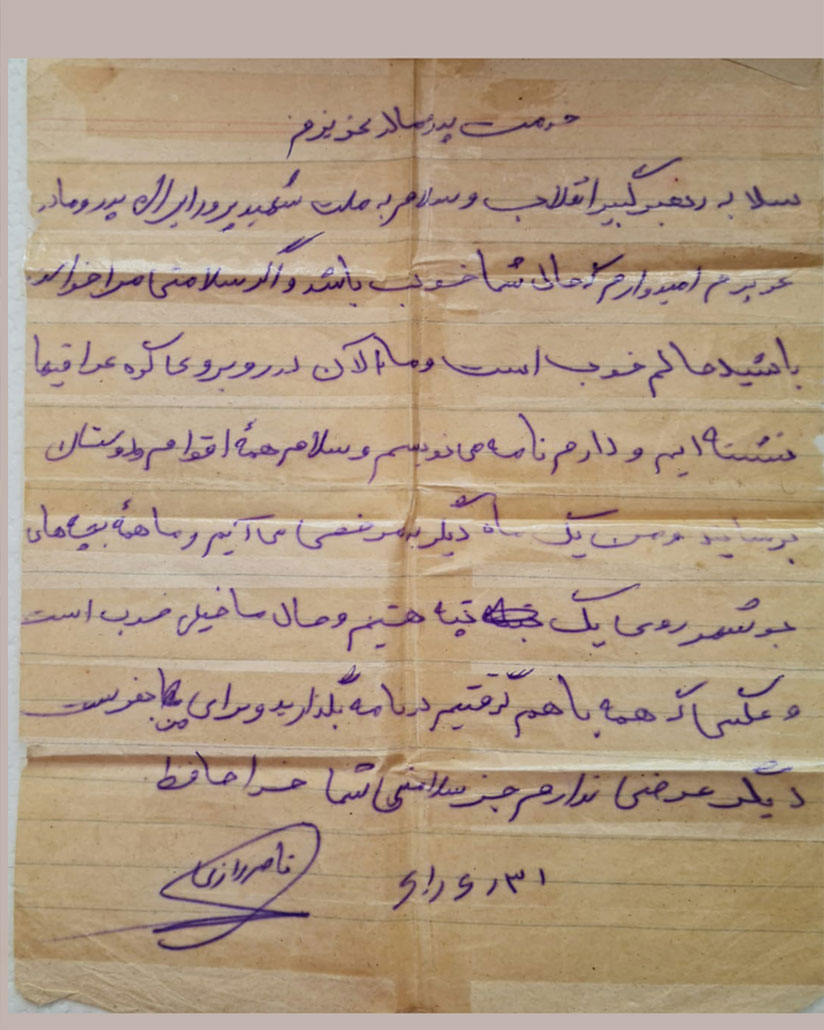 خدمت پدر مادر عزیزم
سلا به رهبر کبیر انقلاب و سلام به ملت شهید پرور ایران پدر و مادر
عزیزم امیدوارم که حالی شما خوب باشد و اگر سلامتی مرا خواسته
باشید حالم خوب است و ما الان در روبروی عراقیها
نشسته ایم و دارم نامه می نویسم و سلام همهٔ اقوام و دوستان
برسانید و من یک ماه دیگر به مرخصی می آیم و ما همهٔ بچه های
روی یک تپه هستیم و حال ما خیلی خوب است
و عکسی که همه با هم گرفتیم در نامه بگذارید و برای ما بفرست
دیگر عرضی ندارم جز سلامتی شما خدا حافظ